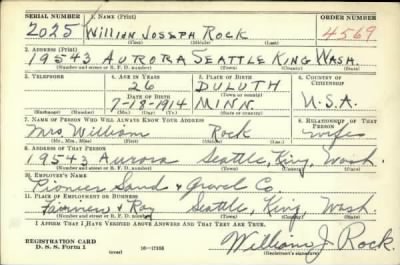 SERIAL NUMBER 1. NAME (Print) ORDER NUMBER
2025 WILLIAM JOSEPH ROCK 4569
(First) (Middle) (Last)
2. ADDRESS (Print)
19543 AURORA SEATTLE KING WASH.
(Number and street or R. F. D. number) (Town) (County) (State)
3. TELEPHONE 4. AGE IN YEARS 5. PLACE OF BIRTH 6. COUNTRY OF CITIZENSHIP
26 DULUTH
DATE OF BIRTH (Town or county)
7-18-1914 MINN. U.S.A.
(Exchange) (Number) (Mo.) (Day) (Yr.) (State or country)
7. NAME OF PERSON WHO WILL ALWAYS KNOW YOUR ADDRESS 8. RELATIONSHIP OF THAT PERSON
Mrs. William Rock wife
(Mr., Mrs., Miss) (First) (Middle) (Last)
9. ADDRESS OF THAT PERSON
19543 Aurora Seattle, King, Wash.
(Number and street or R. F. D. number) (Town) (County) (State)
10. EMPLOYER'S NAME
Pioneer Sand & Gravel Co.
11. PLACE OF EMPLOYMENT OR BUSINESS
Fairview & Roy Seattle, King Wash.
(Number and street or R. F. D. number) (Town) (County) (State)
I AFFIRM THAT I HAVE VERIFIED ABOVE ANSWERS AND THAT THEY ARE TRUE.
REGISTRATION CARD
D. S. S. Form 1 (over) William J. Rock.
(Registrant's signature)